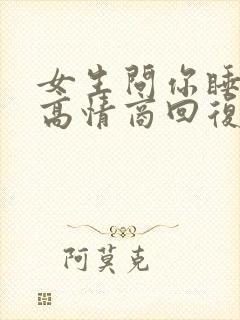 女生問你睡
高情商回復
阿莫克